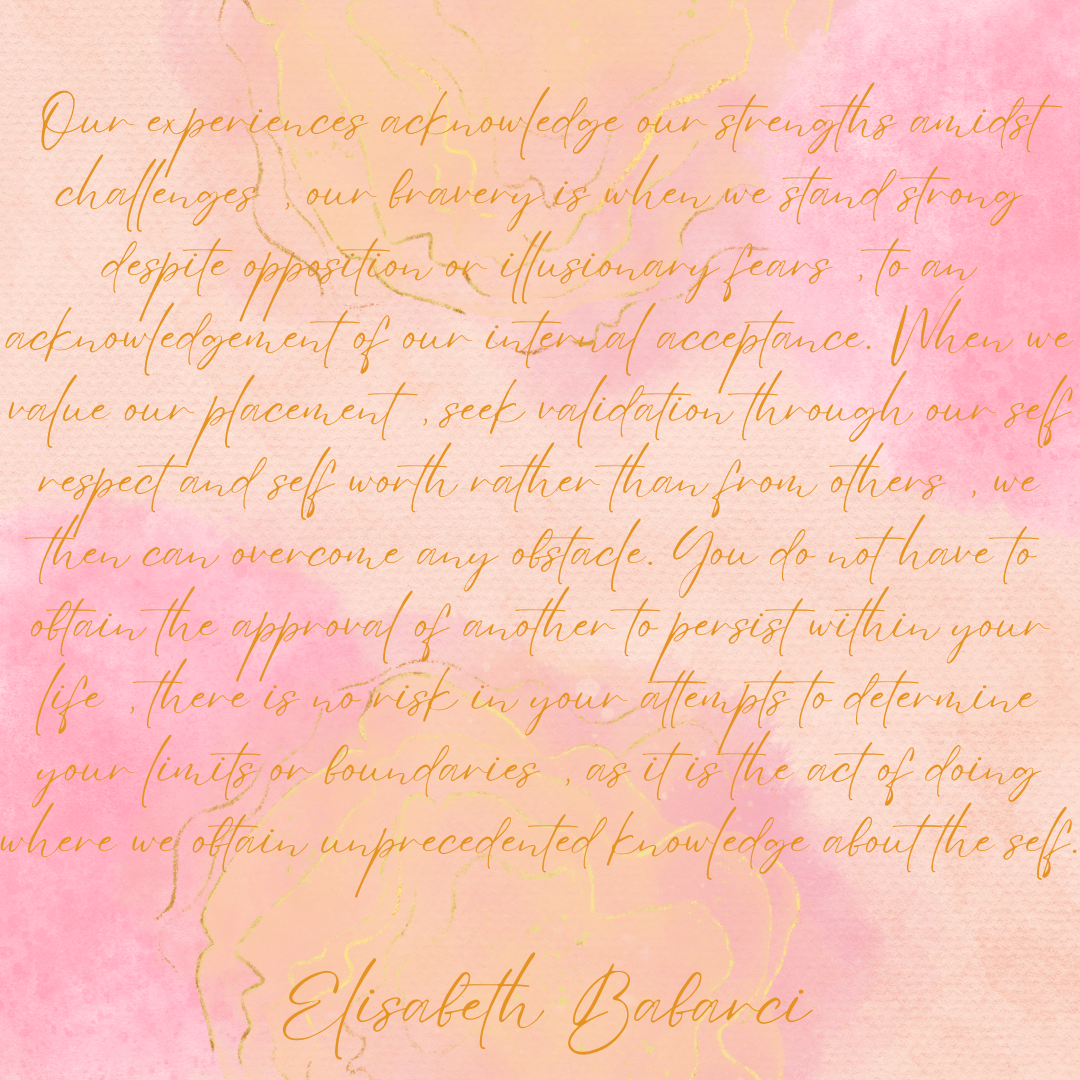 Our experiences acknowledge our strengths amidst
challenges , our bravery is when we stand strong
despite opposition or illusionary fears , to an
acknowledgement of our internal acceptance. When we
value our placement , seek validation through our self
respect and self worth rather than from others , we
then can overcome any obstacle. You do not have to
obtain the approval of another to persist within your
life , there is no risk in your attempts to determine
your limits or boundaries , as it is the act of doing
where we obtain unprecedented knowledge about the self.
Elisabeth Babarci